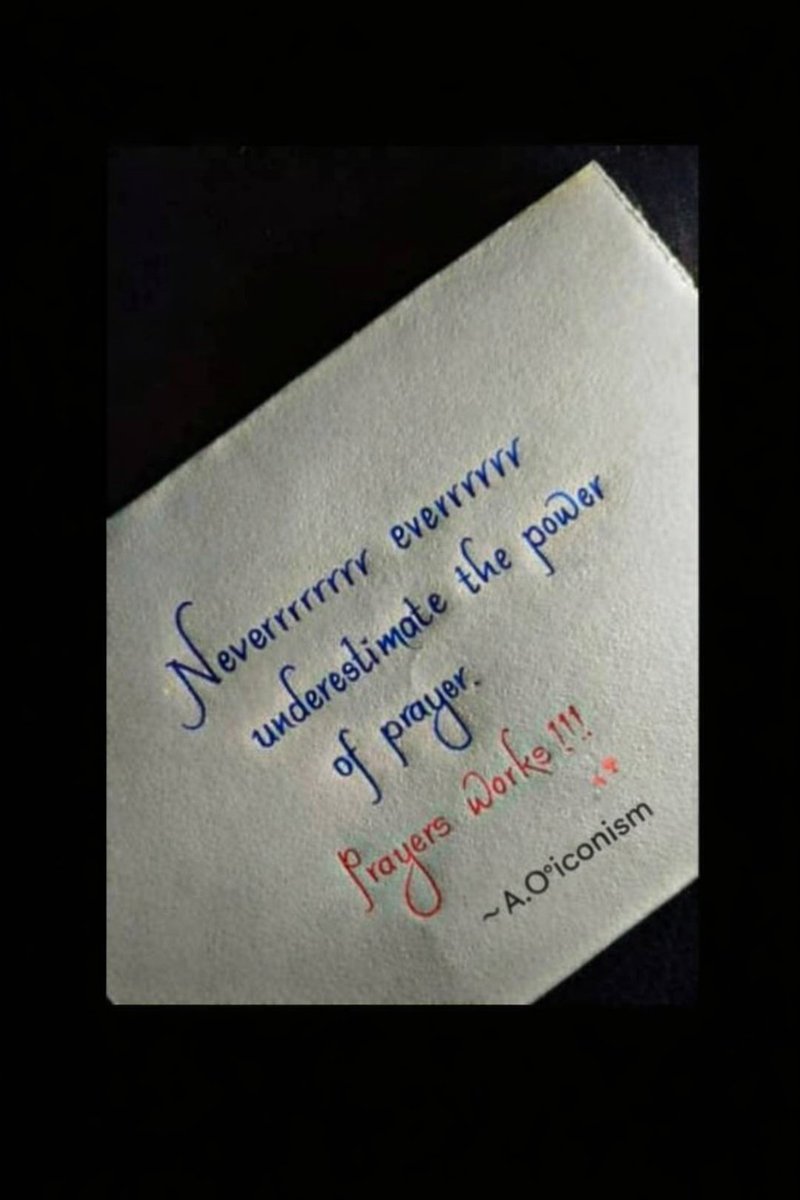 Neverrrrrrrr everrrrrr
underestimate the power
of prayer.
Prayers works!!!
~A.O°iconism